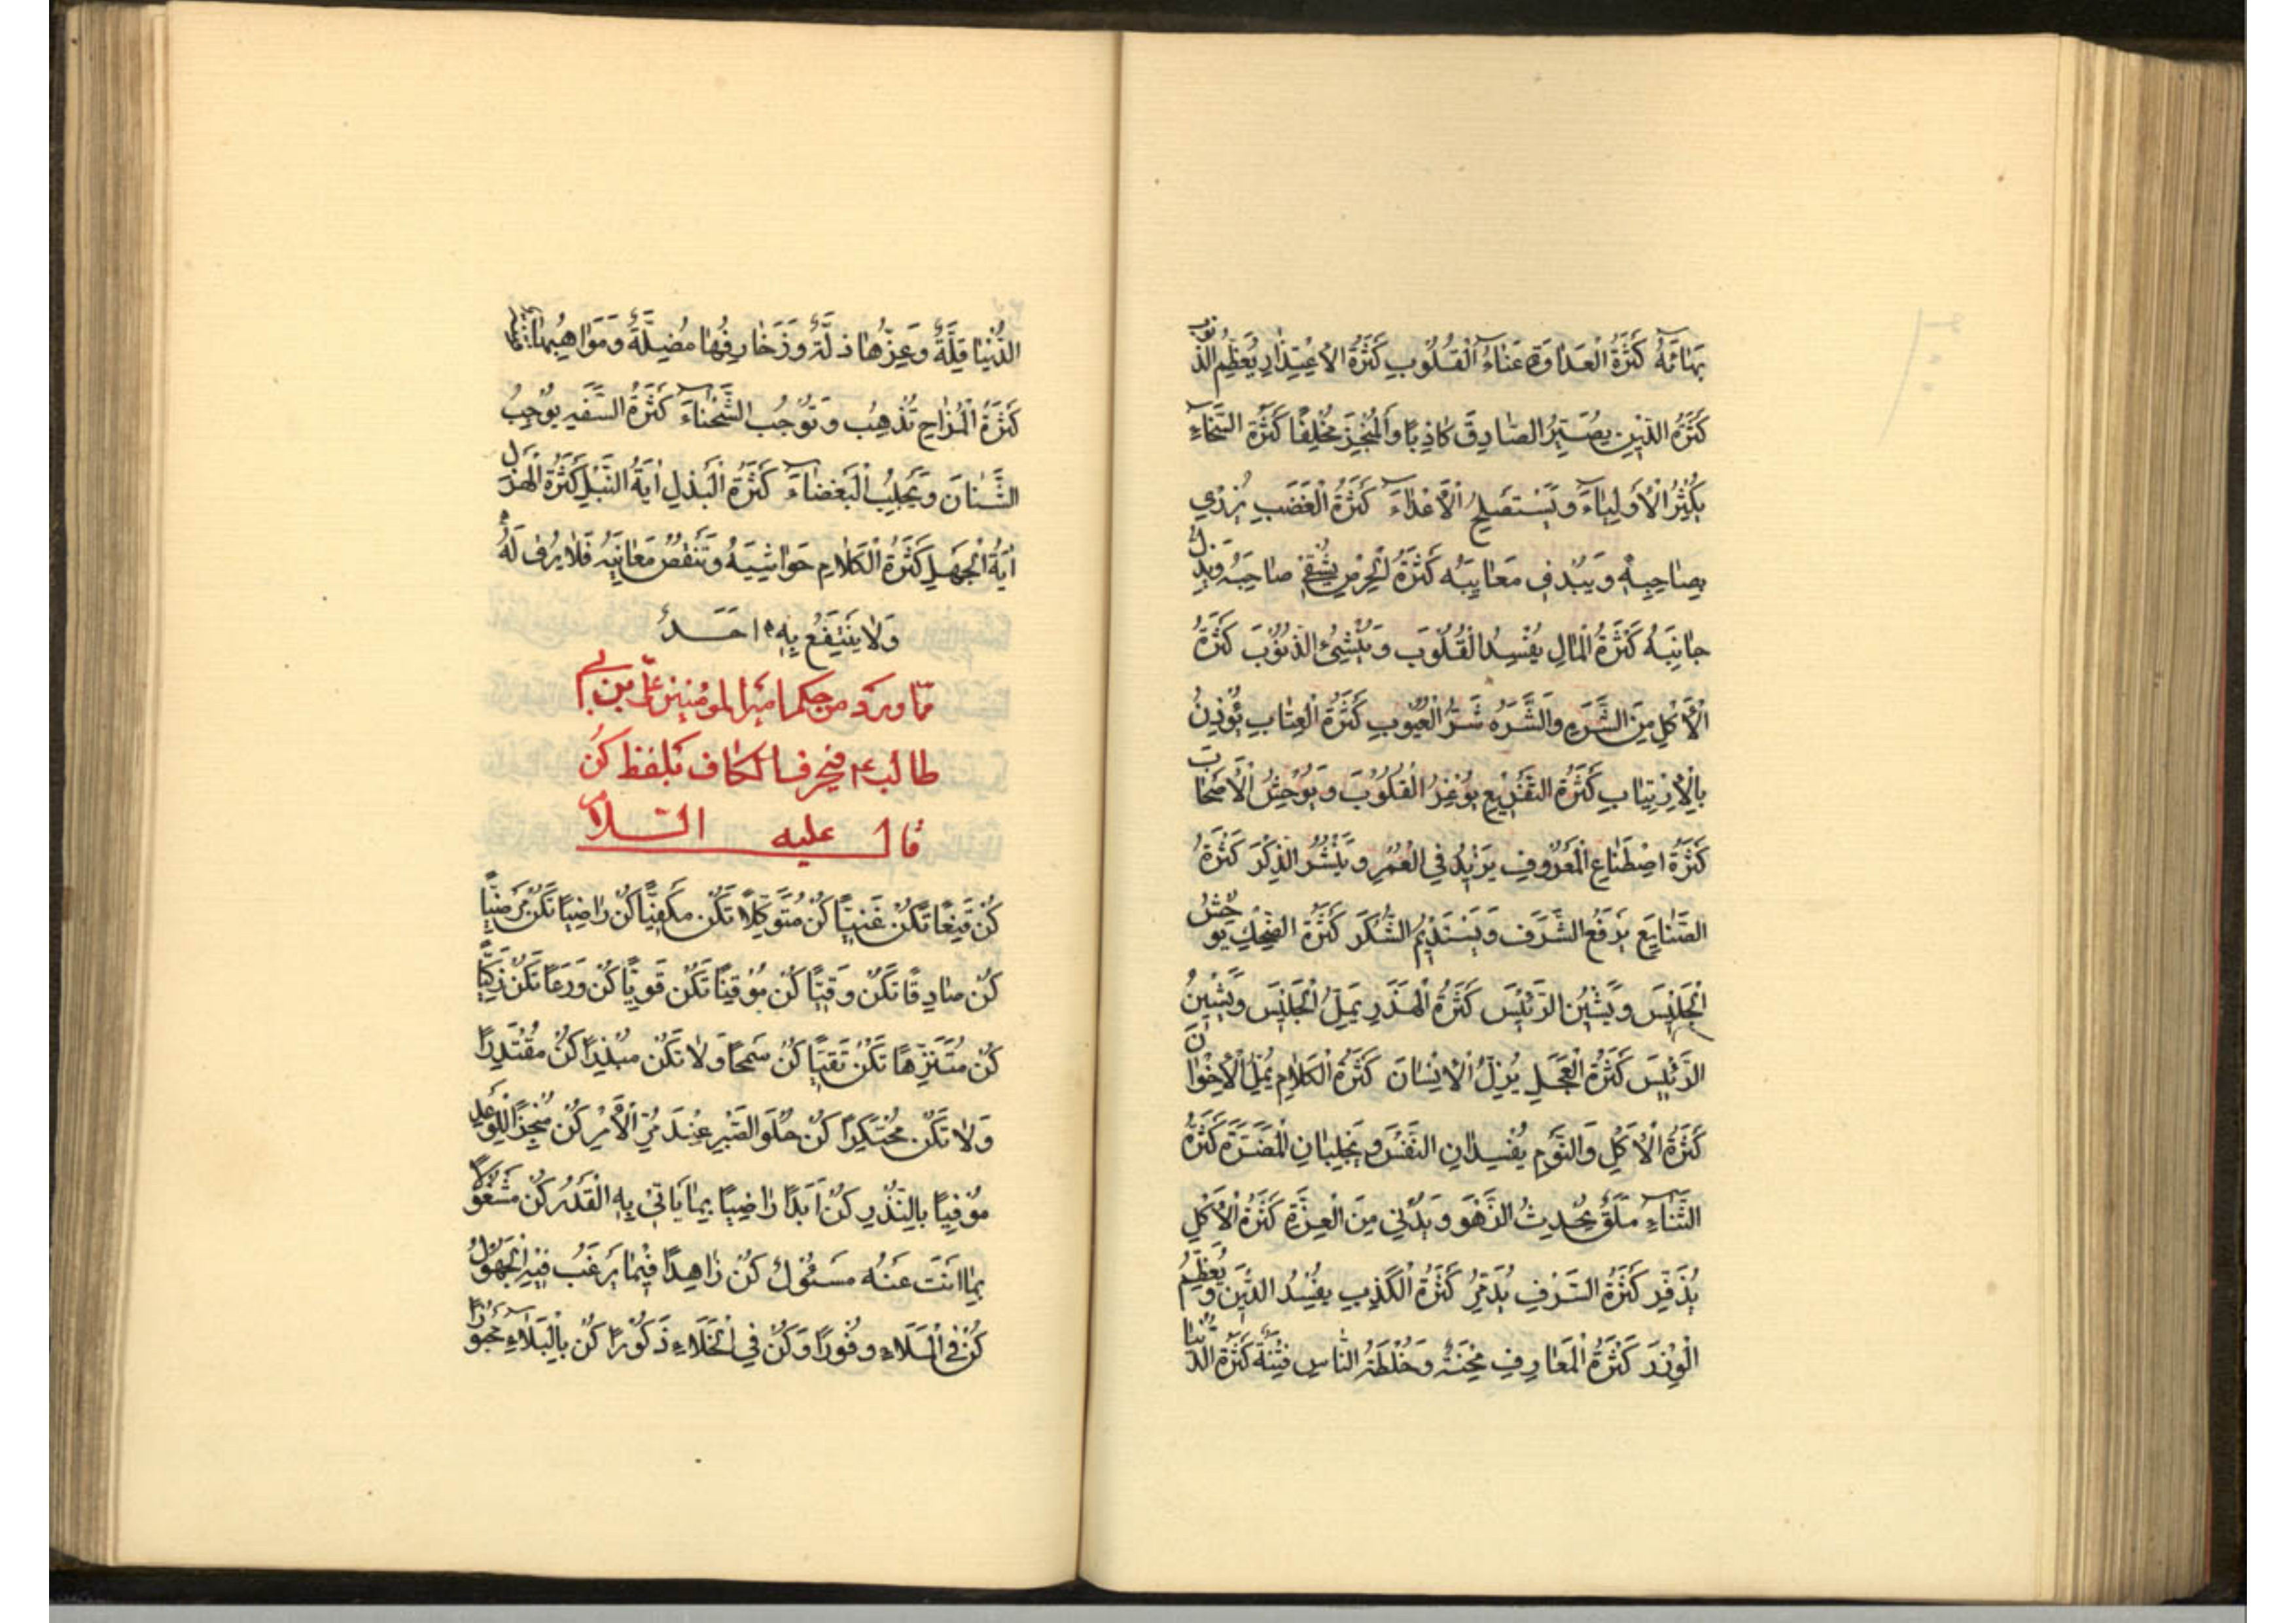 بَهَائَهُ كَثْرَةُ الْعَدَاوَةِ عَنَاءُ الْقُلُوبِ كَثْرَةُ الْاِعْتِذَارِ يُعَظِّمُ الذُّنُوبَ
كَثْرَةُ الدَّيْنِ يُصَيِّرُ الصَّادِقَ كَاذِبًا وَالْمُنْجِزَ مُخْلِفًا كَثْرَةُ السَّخَاءِ
يُكْثِرُ الْأَوْلِيَاءَ وَيَسْتَصْلِحُ الْأَعْدَاءَ كَثْرَةُ الْغَضَبِ يُزْرِي
بِصَاحِبِهِ وَيُبْدِي مَعَايِبَهُ كَثْرَةُ الْحِرْصِ يُشْقِي صَاحِبَهُ وَيُذِلُّ
جَانِبَهُ كَثْرَةُ الْمَالِ يُفْسِدُ الْقُلُوبَ وَيُنْشِئُ الذُّنُوبَ كَثْرَةُ
الْأَكْلِ مِنَ الشَّرَهِ وَالشَّرَهُ شَرُّ الْعُيُوبِ كَثْرَةُ الْعِتَابِ يُؤْذِنُ
بِالْاِرْتِيَابِ كَثْرَةُ التَّقْرِيعِ يُوغِرُ الْقُلُوبَ وَيُوحِشُ الْأَصْحَابَ
كَثْرَةُ اصْطِنَاعِ الْمَعْرُوفِ يَزِيدُ فِي الْعُمُرِ وَيَنْشُرُ الذِّكْرَ كَثْرَةُ
الصَّنَايِعِ يَرْفَعُ الشَّرَفَ وَيَسْتَدِيمُ الشُّكْرَ كَثْرَةُ الضِّحْكِ يُوحِشُ
الْجَلِيسَ وَيَشِينُ الرَّئِيسَ كَثْرَةُ الْهَذَرِ يُمِلُّ الْجَلِيسَ وَيَشِينُ
الرَّئِيسَ كَثْرَةُ الْعَجَلِ يُزِلُّ الْإِنْسَانَ كَثْرَةُ الْكَلَامِ يُمِلُّ الْإِخْوَانَ
كَثْرَةُ الْأَكْلِ وَالنَّوْمِ يُفْسِدَانِ النَّفْسَ وَيَجْلِبَانِ الْمَضَرَّةَ كَثْرَةُ
الثَّنَاءِ مَلَقٌ يُحْدِثُ الزَّهْوَ وَيُدْنِي مِنَ الْعِزَّةِ كَثْرَةُ الْأَكْلِ
يُذَفِّرُ كَثْرَةُ السَّرَفِ يُدَمِّرُ كَثْرَةُ الْكَذِبِ يُفْسِدُ الدِّينَ وَيُعَظِّمُ
الْوِزْرَ كَثْرَةُ الْمَعَارِفِ مِحْنَةٌ وَخُلْطَةُ النَّاسِ فِتْنَةٌ كَثْرَةُ الدُّنْيَا
الدُّنْيَا قِلَّةٌ وَعِزُّهَا ذِلَّةٌ وَزَخَارِفُهَا مُضِلَّةٌ وَمَوَاهِبُهَا
كَثْرَةُ الْمُزَاحِ تُذْهِبُ وَتُوجِبُ الشَّحْنَاءَ كَثْرَةُ السَّفَهِ يُوجِبُ
الشَّنَانَ وَيَجْلِبُ الْبَغْضَاءَ كَثْرَةُ الْبَذْلِ اٰيَةُ النُّبْلِ كَثْرَةُ الْهَزْلِ
اٰيَةُ الْجَهْلِ كَثْرَةُ الْكَلَامِ حَوَاشِيَهُ وَتَنْقُصُ مَعَانِيَهُ فَلَا يُرٰى لَهُ
وَلَا يَنْتَفِعُ بِهِ اَحَدٌ
مما ورد من حكم امير المؤمنين علي بن ابي
طالب ع م في حرف الكاف بلفظ كن
قال عليه السلام
كُنْ قَنِعًا تَكُنْ غَنِيًّا كُنْ مُتَوَكِّلًا تَكُنْ مَكْفِيًّا كُنْ رَاضِيًا تَكُنْ مَرْضِيًّا
كُنْ صَادِقًا تَكُنْ وَفِيًّا كُنْ مُوقِنًا تَكُنْ قَوِيًّا كُنْ وَرَعًا تَكُنْ زَكِيًّا
كُنْ مُتَنَزِّهًا تَكُنْ تَقِيًّا كُنْ سَمِحًا وَلَا تَكُنْ مُبَذِّرًا كُنْ مُقْتَدِرًا
وَلَا تَكُنْ مُحْتَكِرًا كُنْ حُلْوَ الصَّبْرِ عِنْدَ مُرِّ الْأَمْرِ كُنْ مُنْجِزًا لِلْوَعْدِ
مُوفِيًا بِالنَّذْرِ كُنْ أَبَدًا رَاضِيًا بِمَا يَأْتِي بِهِ الْقَدَرُ كُنْ مَشْغُولًا
بِمَا أَنْتَ عَنْهُ مَسْئُولٌ كُنْ زَاهِدًا فِيمَا يَرْغَبُ فِيهِ الْجَهُولُ
كُنْ فِي الْمَلَاءِ وَقُورًا وَكُنْ فِي الْخَلَاءِ ذَكُورًا كُنْ بِالْبَلَاءِ مَحْبُورًا